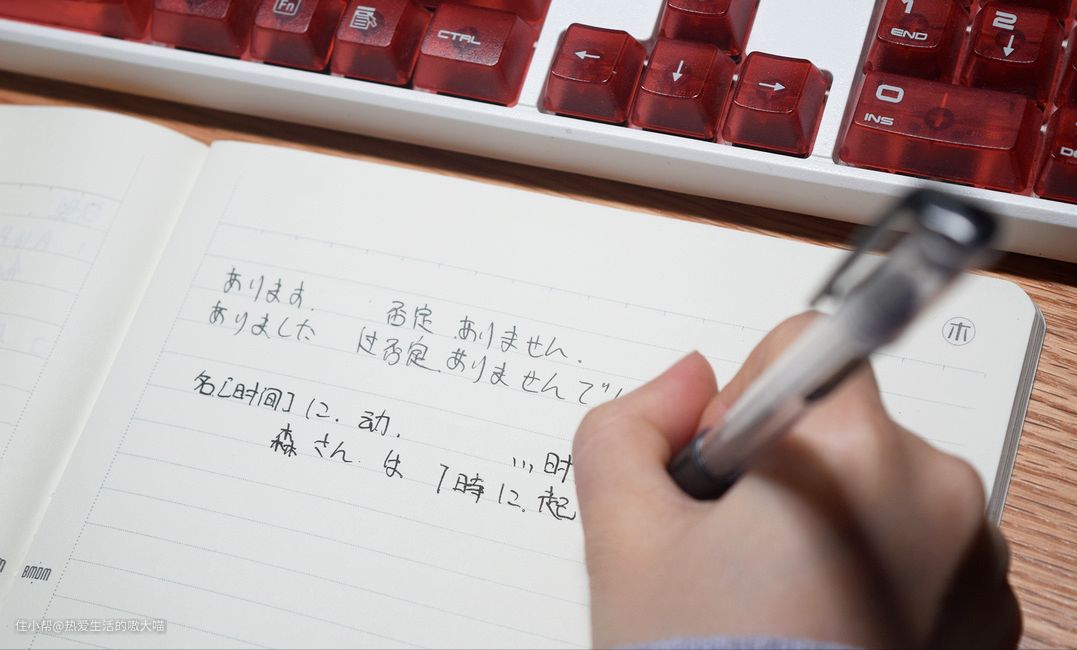 Fn
CTRL
←
↓
→
1
END
2
↓
0
INS
あります.　否定 ありません.
ありました　过否定.ありませんで
名[时间]に.动.
...时
森さんは 7時に.起
木
BMOM
住小帮@热爱生活的嗷大喵